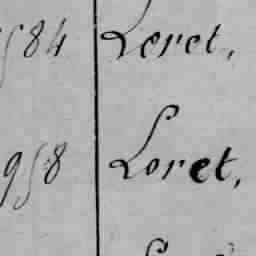 584 Leret,
958 Loret,